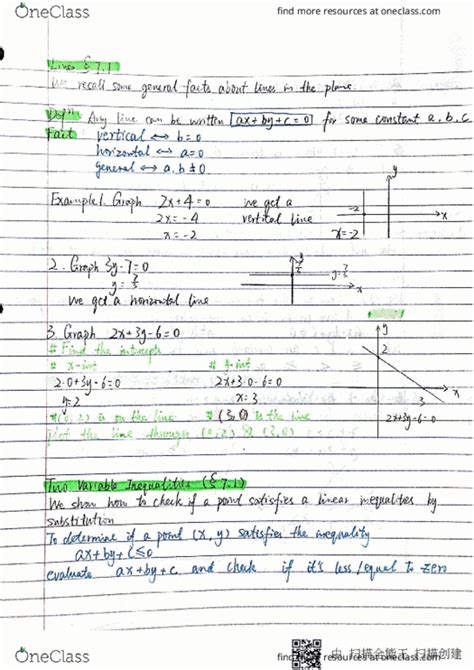 OneClass
find more resources at oneclass.com
Lines § 7.1
We recall some general facts about lines in the plane.
Defn: Any line can be written ax+by+c=0 for some constant a, b, c
Fact vertical ⟷ b=0
horizontal ⟷ a=0
general ⟷ a,b≠0
Example 1. Graph 2x+4=0 we get a
2x=-4 vertical line
x=-2
y
-2
x
x=-2
2. Graph 3y-7=0
y=7/3
we get a horizontal line
y
7/3
y=7/3
x
3. Graph 2x+3y-6=0
# Find the intercepts
# x-int # y-int
2·0+3y-6=0 2x+3·0-6=0
y=2 x=3
#(0,2) is on the line #(3,0) is the line
plot the line through (0,2) & (3,0)
y
2
3
x
2x+3y-6=0
Two Variable Inequalities (§ 7.1)
We show how to check if a point satisfies a linear inequalities by
substitution
To determine if a point (x, y) satisfies the inequality
ax+by+c≤0
evaluate ax+by+c and check if it's less/equal to zero
OneClass
find more resources at oneclass.com
由 扫描全能王 扫描创建